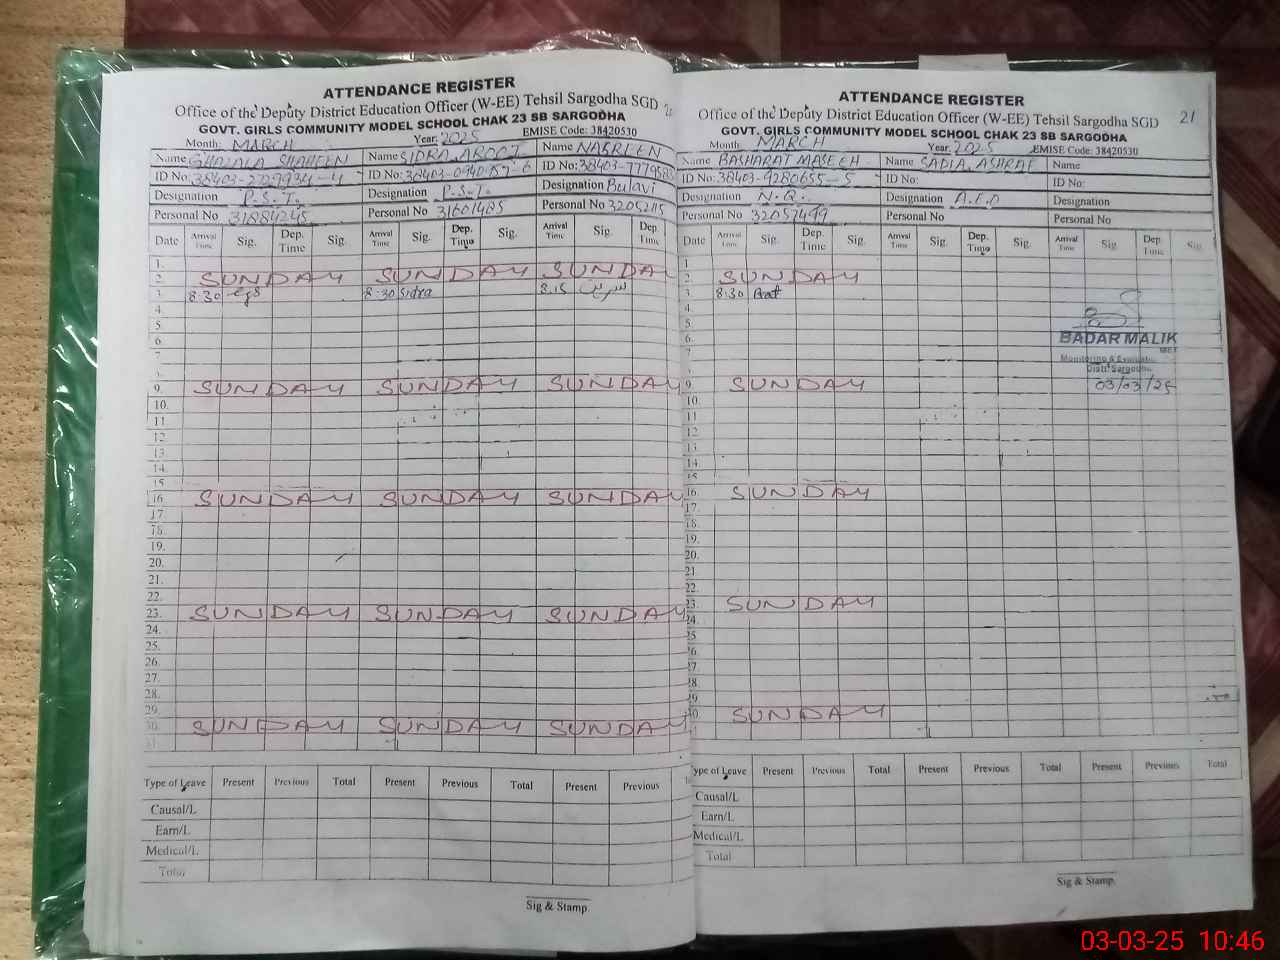 ATTENDANCE REGISTER
Office of the Deputy District Education Officer (W-EE) Tehsil Sargodha SGD
GOVT. GIRLS COMMUNITY MODEL SCHOOL CHAK 23 SB SARGODHA
Month: MARCH Year. 2025 EMISE Code: 38420530
Name GHAZALA SHAHEEN Name SIDRA AROOJ Name NASREEN
ID No: ID No: ID No:
Designation P.S.T. Designation P.S.T. Designation
Personal No 31884245 Personal No 31601485 Personal No
Date Arrival Time Sig. Dep. Time Sig. Arrival Time Sig. Dep. Time Sig. Arrival Time Sig. Dep Time
1.
2. SUNDAY SUNDAY SUNDAY
3. 8:30 8:30 Sidra 8:15 نسرین
4.
5.
6.
7
9. SUNDAY SUNDAY SUNDAY
10.
11
12
13.
14.
15
16 SUNDAY SUNDAY SUNDAY
17.
18.
19.
20.
21.
22.
23. SUNDAY SUNDAY SUNDAY
24.
25.
26.
27.
28.
29.
30. SUNDAY SUNDAY SUNDAY
31.
Type of Leave Present Previous Total Present Previous Total Present Previous
Causal/L
Earn/L
Medical/L
Total
Sig & Stamp.
21
ATTENDANCE REGISTER
Office of the Deputy District Education Officer (W-EE) Tehsil Sargodha SGD
GOVT. GIRLS COMMUNITY MODEL SCHOOL CHAK 23 SB SARGODHA
Month: MARCH Year. 2025 EMISE Code: 38420530
Name BASHARAT MASEEH Name SADIA ASHRAF Name
ID No: 38403-9280655-5 ID No: ID No:
Designation N.Q. Designation A.E.O Designation
Personal No 32057499 Personal No Personal No
Date Arrival Time Sig. Dep. Time Sig. Arrival Time Sig. Dep. Time Sig. Arrival Time Sig. Dep. Time Sig.
1
2. SUNDAY
3. 8:30
4.
5.
6.
7.
BADAR MALIK
Monitoring & Evaluation
Distt. Sargodha
9. SUNDAY 03/03/25
10.
11.
12.
13.
14.
15
16. SUNDAY
17.
18.
19.
20.
21.
22.
23. SUNDAY
24.
25
26.
27
28
29
30 SUNDAY
Type of Leave Present Previous Total Present Previous Total Present Previous Total
Causal/L
Earn/L
Medical/L
Total
Sig & Stamp.
03-03-25 10:46